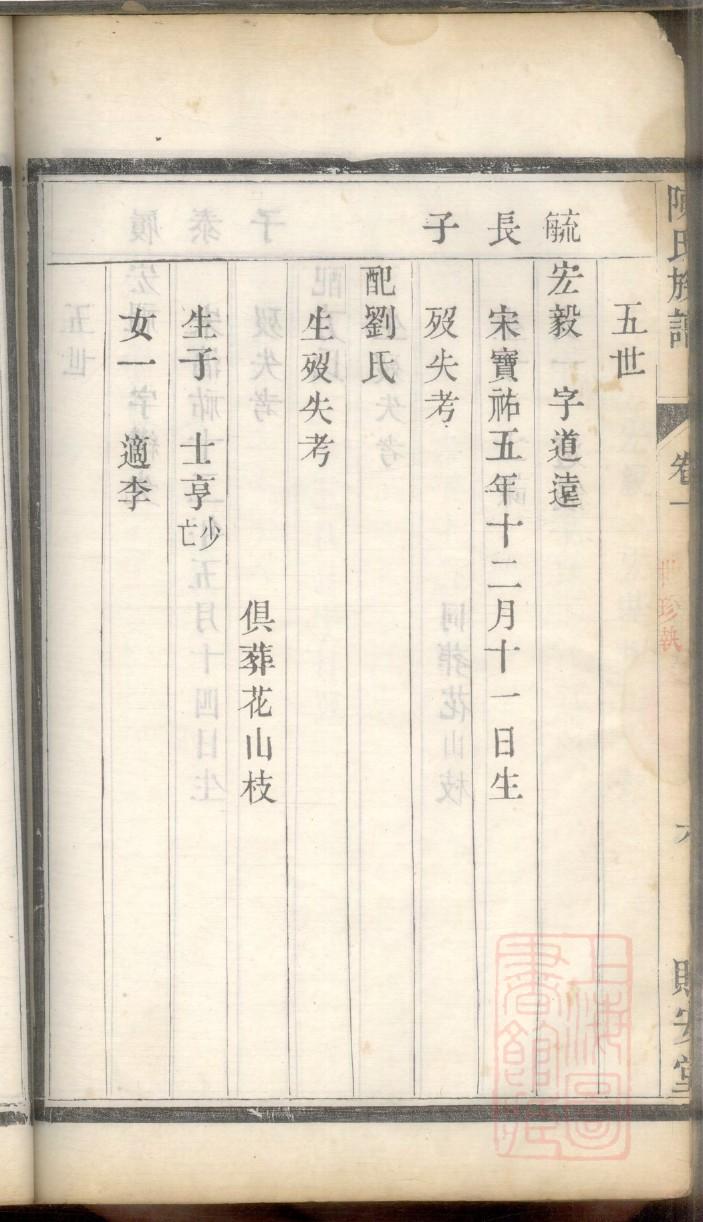 陳氏族譜 卷一 六
五世
毓長子
宏毅 字道遠
宋寶祐五年十二月十一日生
歿失考
配劉氏
生歿失考
俱葬花山枝
生子 士亨少亡
女一 適李
上海圖書館藏